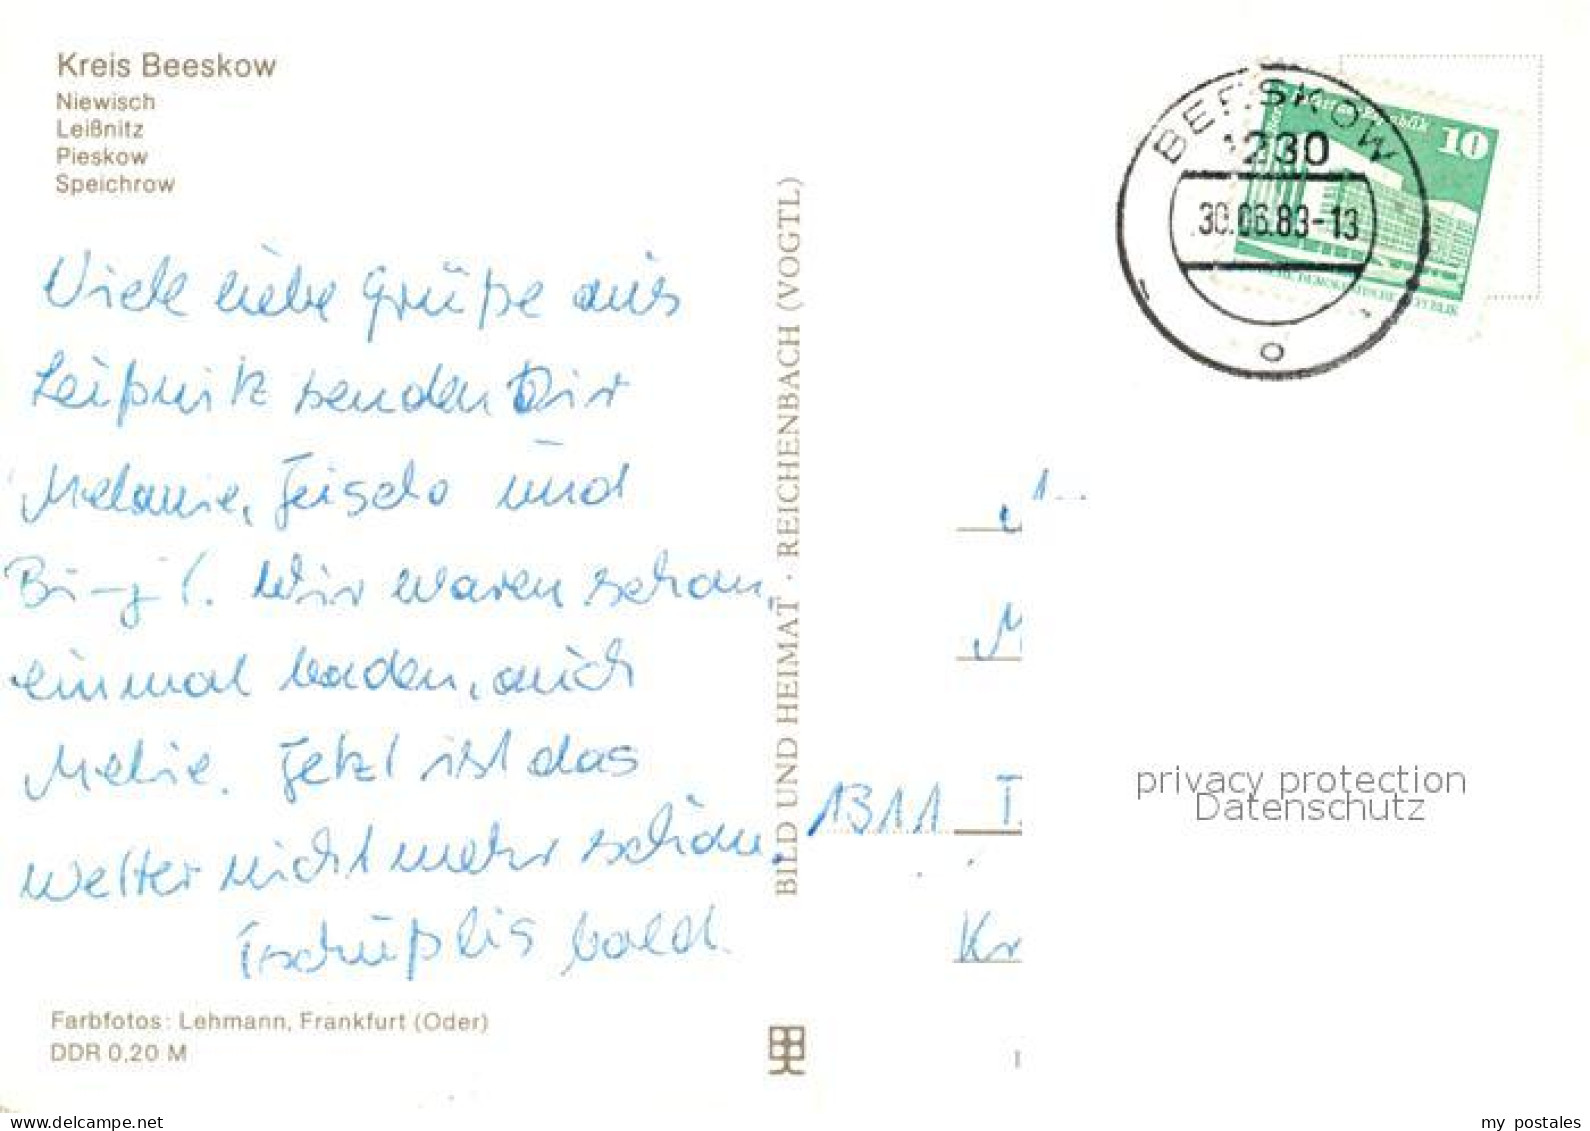 Kreis Beeskow
Niewisch
Leißnitz
Pieskow
Speichrow
Viele liebe Grüße aus
Leißnitz senden Dir
Melanie, und
Wir waren schon
einmal baden, auch
Melie. Jetzt ist das
Wetter nicht mehr schön.
Tschüß bis bald.
Farbfotos: Lehmann, Frankfurt (Oder)
DDR 0,20 M
BILD UND HEIMAT · REICHENBACH (VOGTL)
BEESKOW
1230
30.06.83-13
o
10
1311 T
Kr
privacy protection
Datenschutz
www.delcampe.net
my_postales